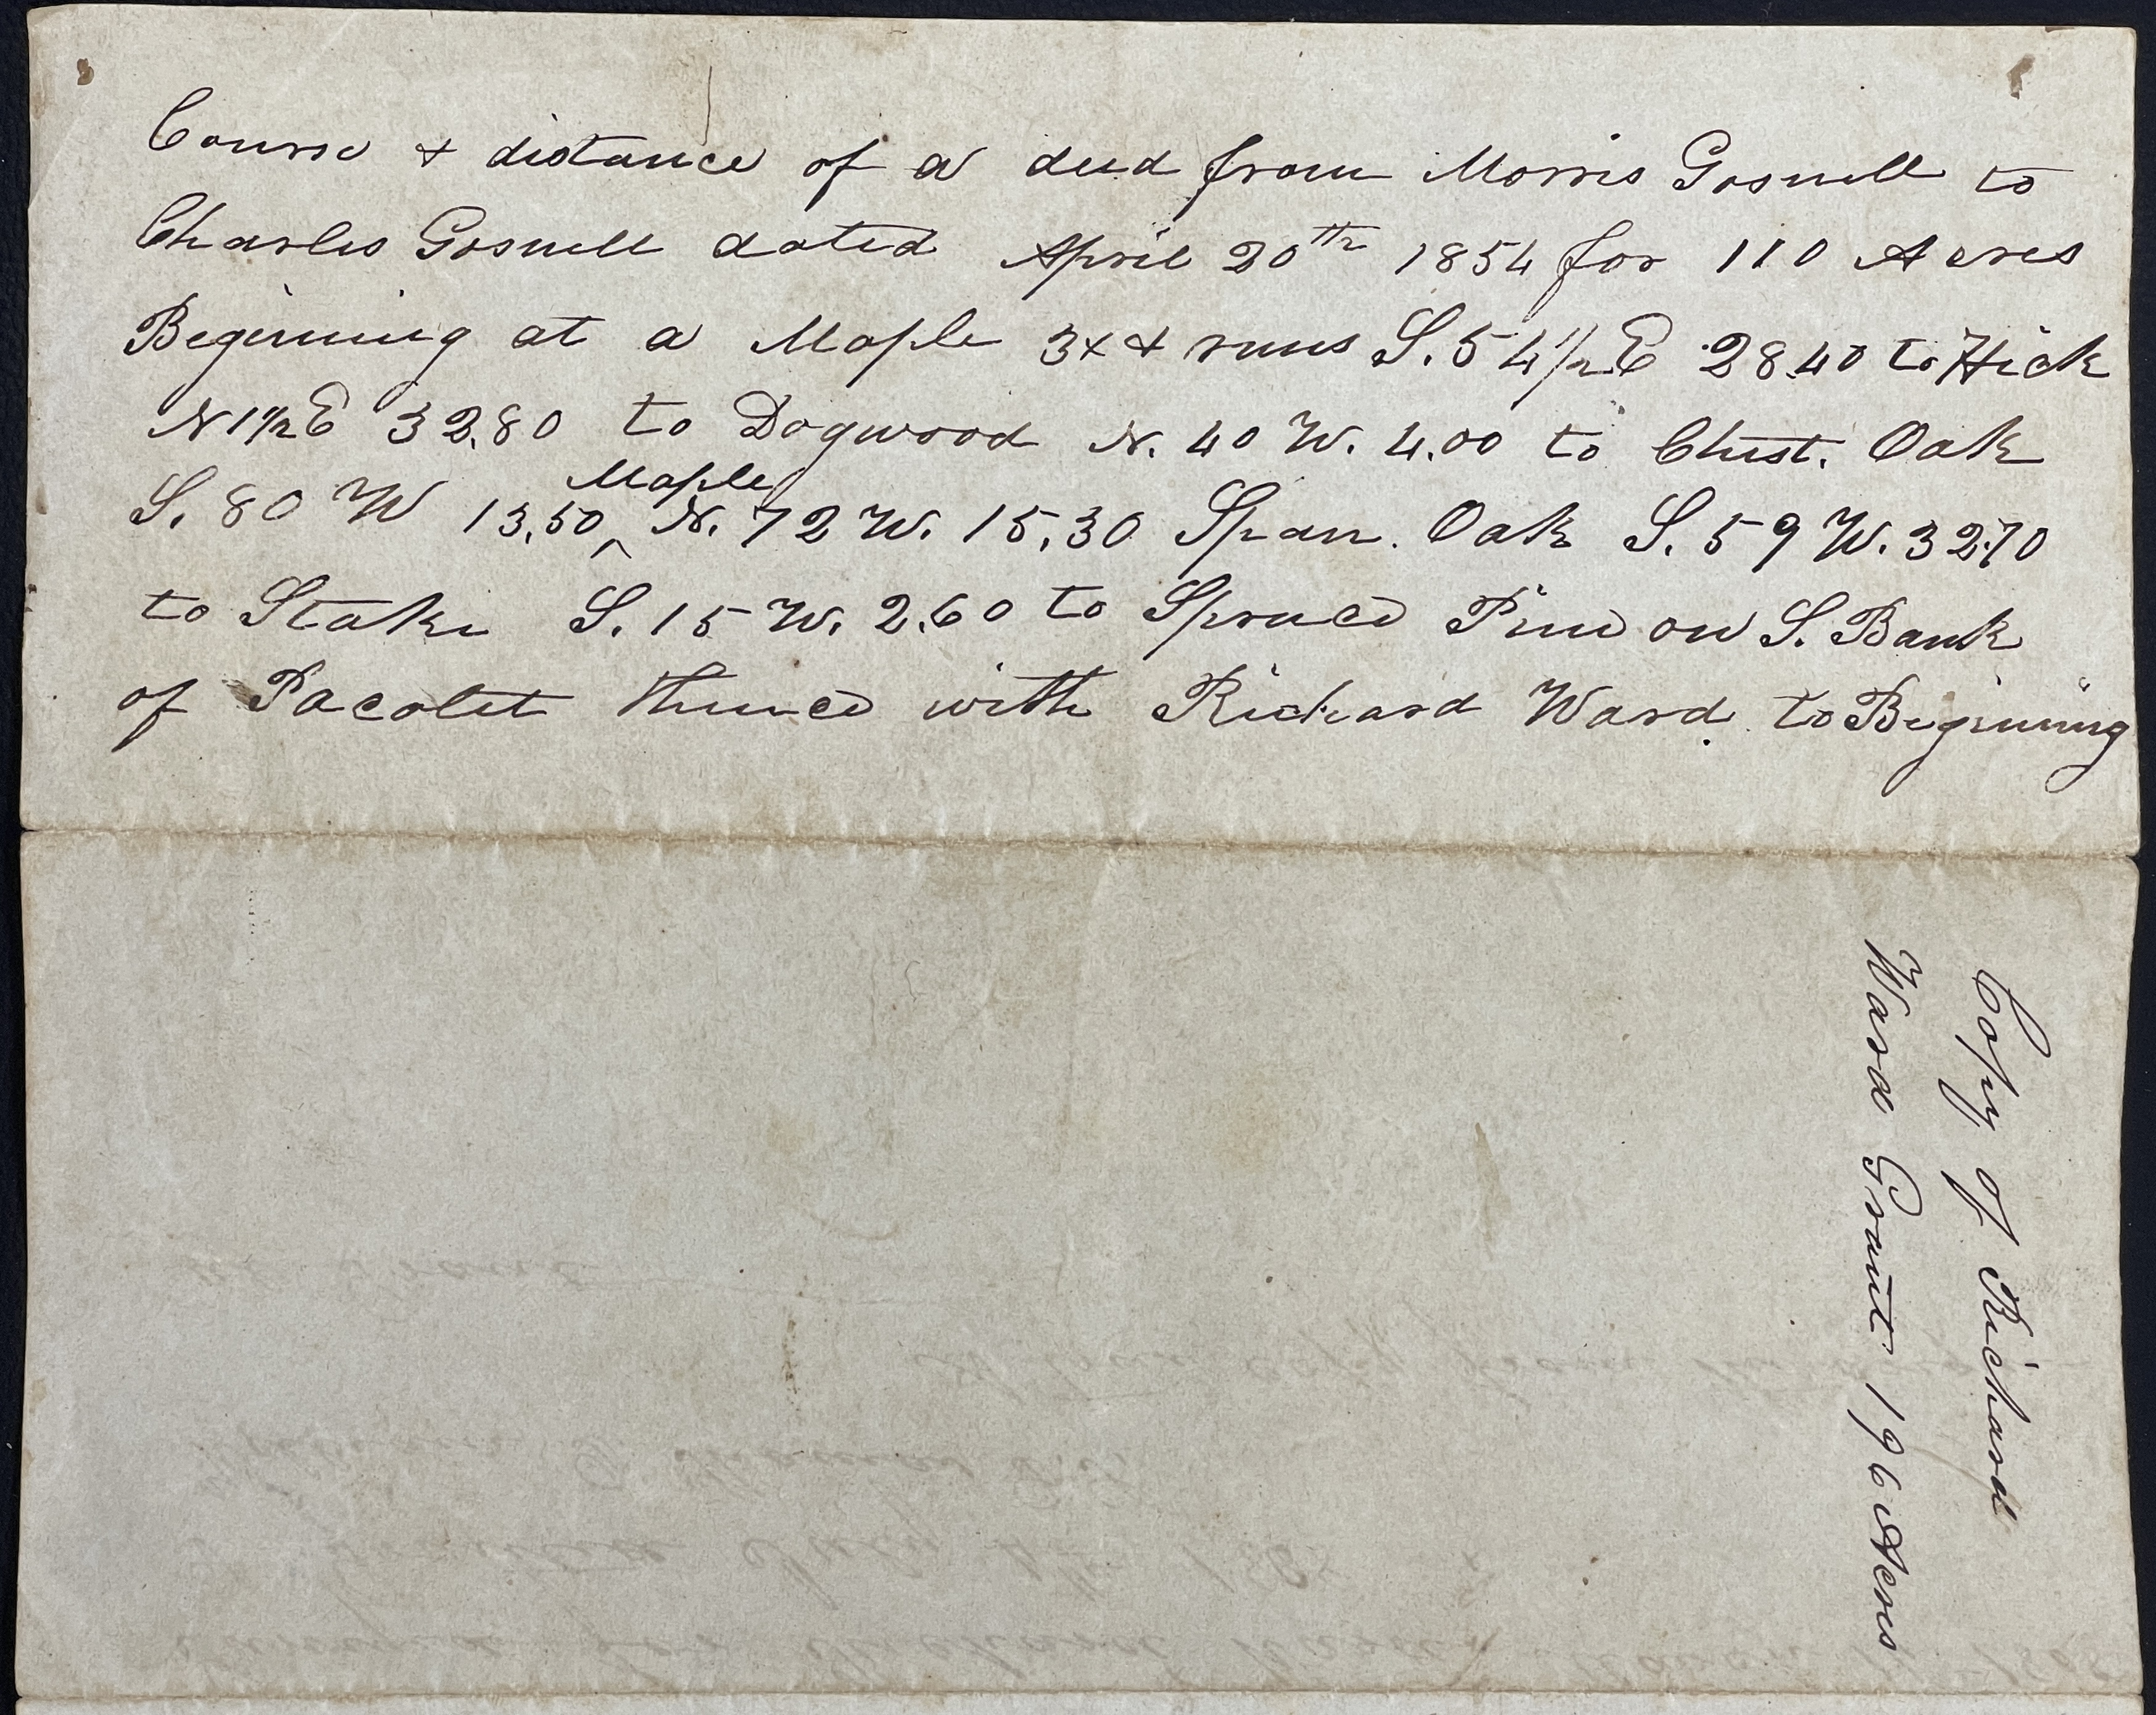 Course & distance of a deed from Morris Gosnell to
Charles Gosnell dated April 20th 1854 for 110 Acres
Beginning at a Maple 3x & runs S. 54 1/2 E 28.40 to Hick
N 1 1/2 E 32.80 to Dogwood N. 40 W. 4.00 to Chest. Oak
Maple
S. 80 W 13.50 ^ N. 72 W. 15.30 Span. Oak S. 59 W. 32.70
to Stake S. 15 W. 2.60 to Spruce Pine on S. Bank
of Pacolet thence with Richard Ward to Beginning
Copy of Richard
Ward Grant 196 Acres